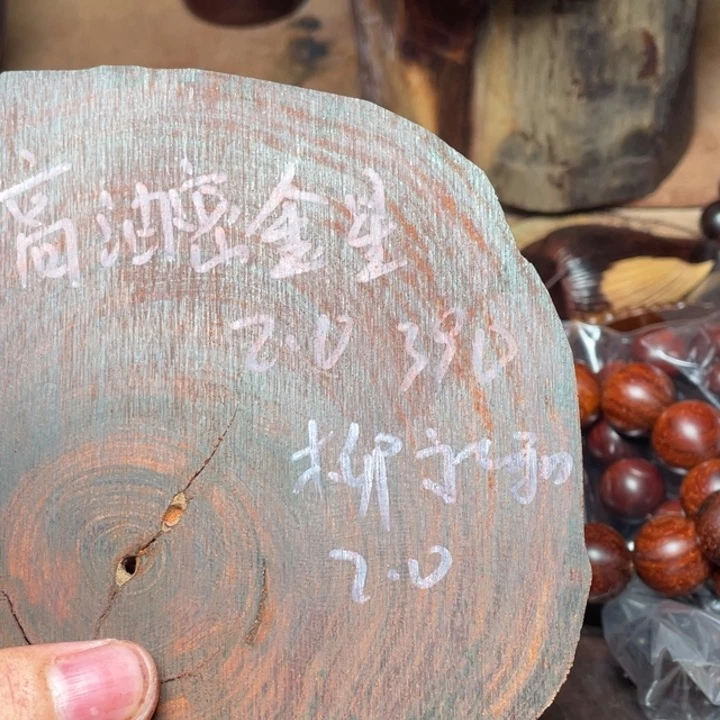 高油密金星
2.0 390
柳永勤
2.0